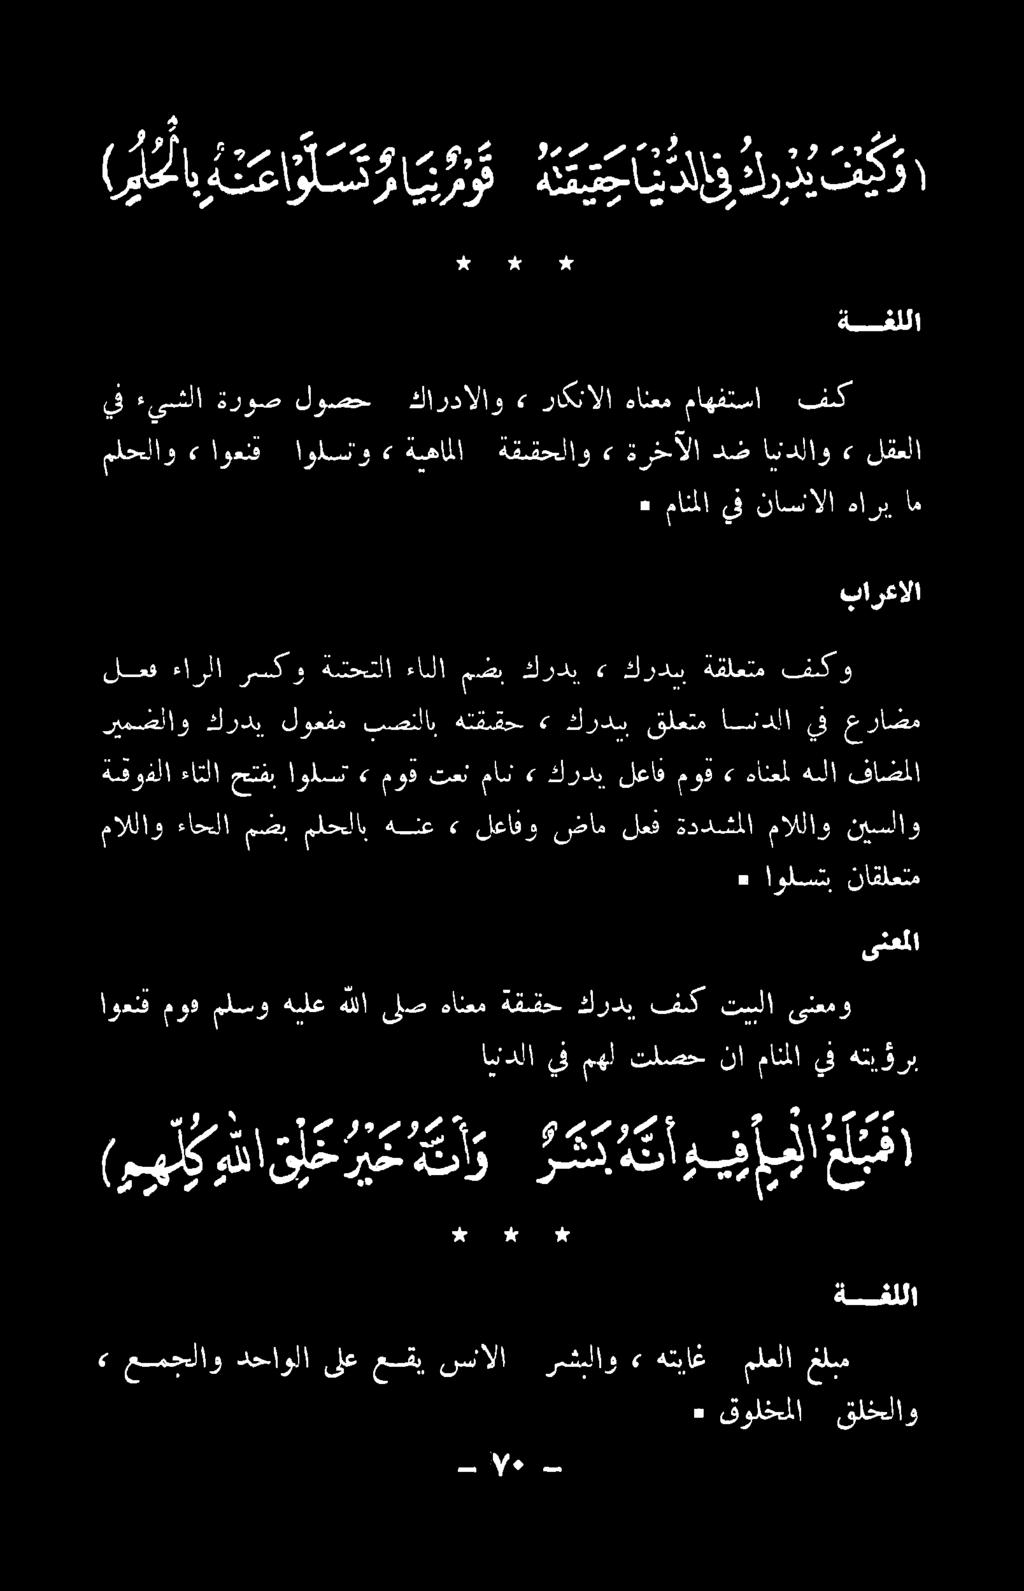 (وَكَيْفَ يُدْرِكُ فِي الدُّنْيَا حَقِيقَتَهُ قَوْمٌ نِيَامٌ تَسَلَّوْا عَنْهُ بِالْحُلُمِ)
★ ★ ★
اللغــة
كيف استفهام معناه الانكار ، والادراك حصول صورة الشيء في
العقل ، والدنيا ضد الآخرة ، والحقيقة الماهية ، وتسلوا قنعوا ، والحلم
ما يراه الانسان في المنام .
الاعراب
وكيف متعلقة بيدرك ، يدرك بضم الياء التحتية وكسر الراء فعــل
مضارع في الدنيــا متعلق بيدرك ، حقيقته بالنصب مفعول يدرك والضمير
المضاف اليه لمعناه ، قوم فاعل يدرك ، نيام نعت قوم ، تسلوا بفتح التاء الفوقية
والسين واللام المشددة فعل ماض وفاعل ، عنــه بالحلم بضم الحاء واللام
متعلقان بتسلوا .
المعنى
ومعنى البيت كيف يدرك حقيقة معناه صلى الله عليه وسلم قوم قنعوا
برؤيته في المنام ان حصلت لهم في الدنيا
(فَمَبْلَغُ الْعِلْمِ فِيهِ أَنَّهُ بَشَرٌ وَأَنَّهُ خَيْرُ خَلْقِ اللهِ كُلِّهِمِ)
★ ★ ★
اللغــة
مبلغ العلم غايته ، والبشر الانس يقــع على الواحد والجمــع ،
والخلق المخلوق .
– ٧٠ –